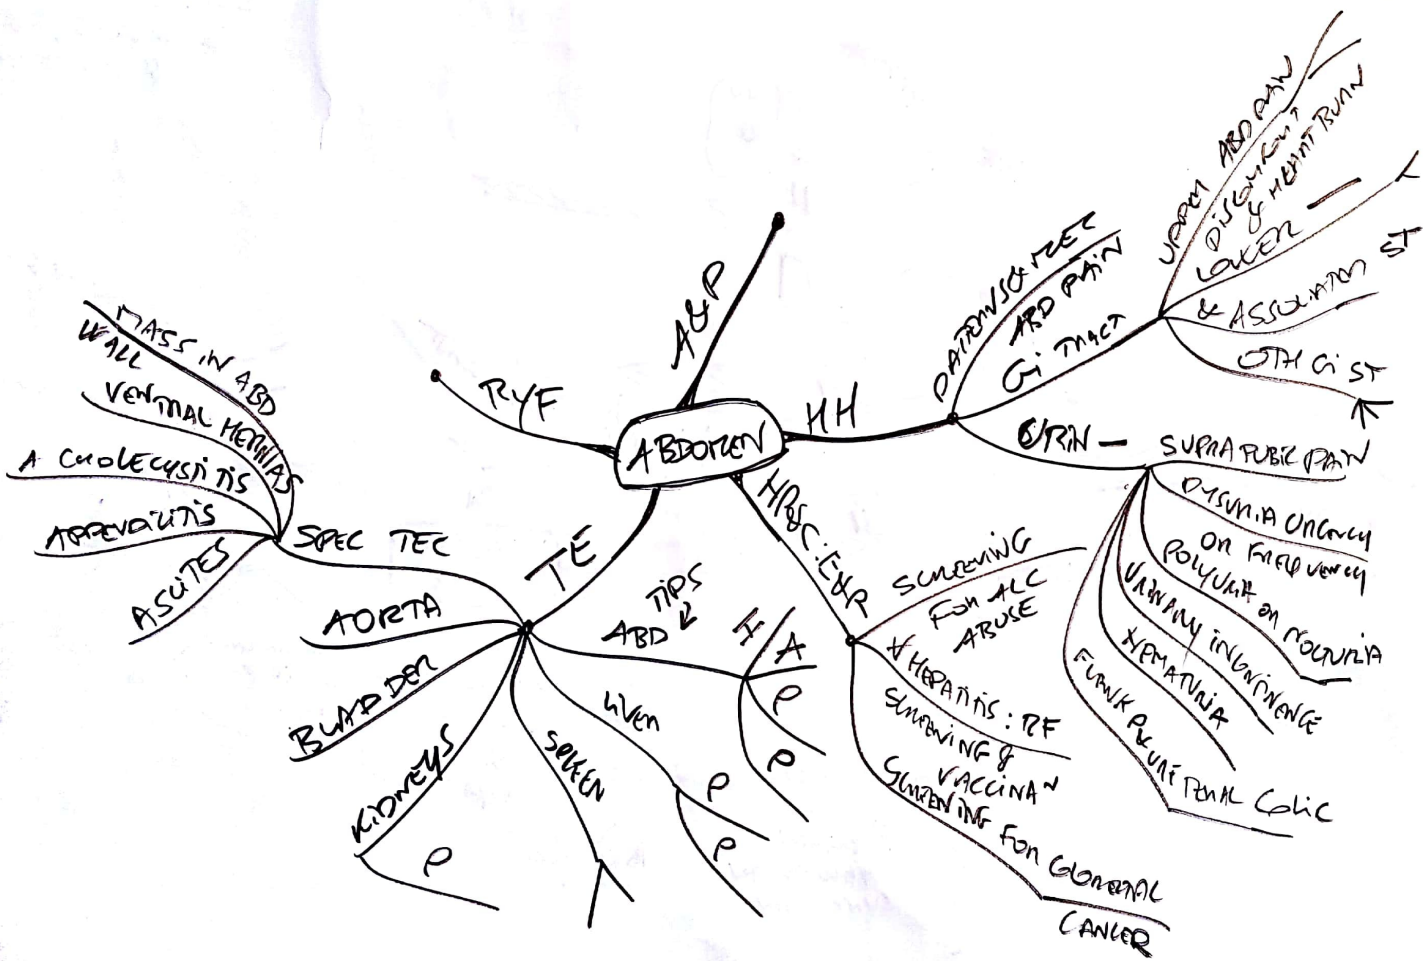 ABDOMEN
A&P
HH
PATTERNS & MEC
ABD PAIN
GI TRACT
UPPER ABD PAIN
DISCOMFORT
& HEARTBURN
LOWER —
& ASSOCIATED ST
OTH GI ST
URIN —
SUPRAPUBIC PAIN
DYSURIA URGENCY
OR FREQUENCY
POLYURIA OR NOCTURIA
URINARY INCONTINENCE
HEMATURIA
FLANK P &
URETERAL COLIC
HP&C: E&R
SCREENING
FOR ALC
ABUSE
HEPATITIS: RF
SCREENING &
VACCINAN
SCREENING FOR COLORECTAL
CANCER
TE
TIPS
ABD
I
A
P
P
LIVER
P
P
SPLEEN
KIDNEYS
P
BLADDER
AORTA
SPEC TEC
MASS IN ABD
WALL
VENTRAL HERNIAS
A CHOLECYSTITIS
APPENDICITIS
ASCITES
RYF